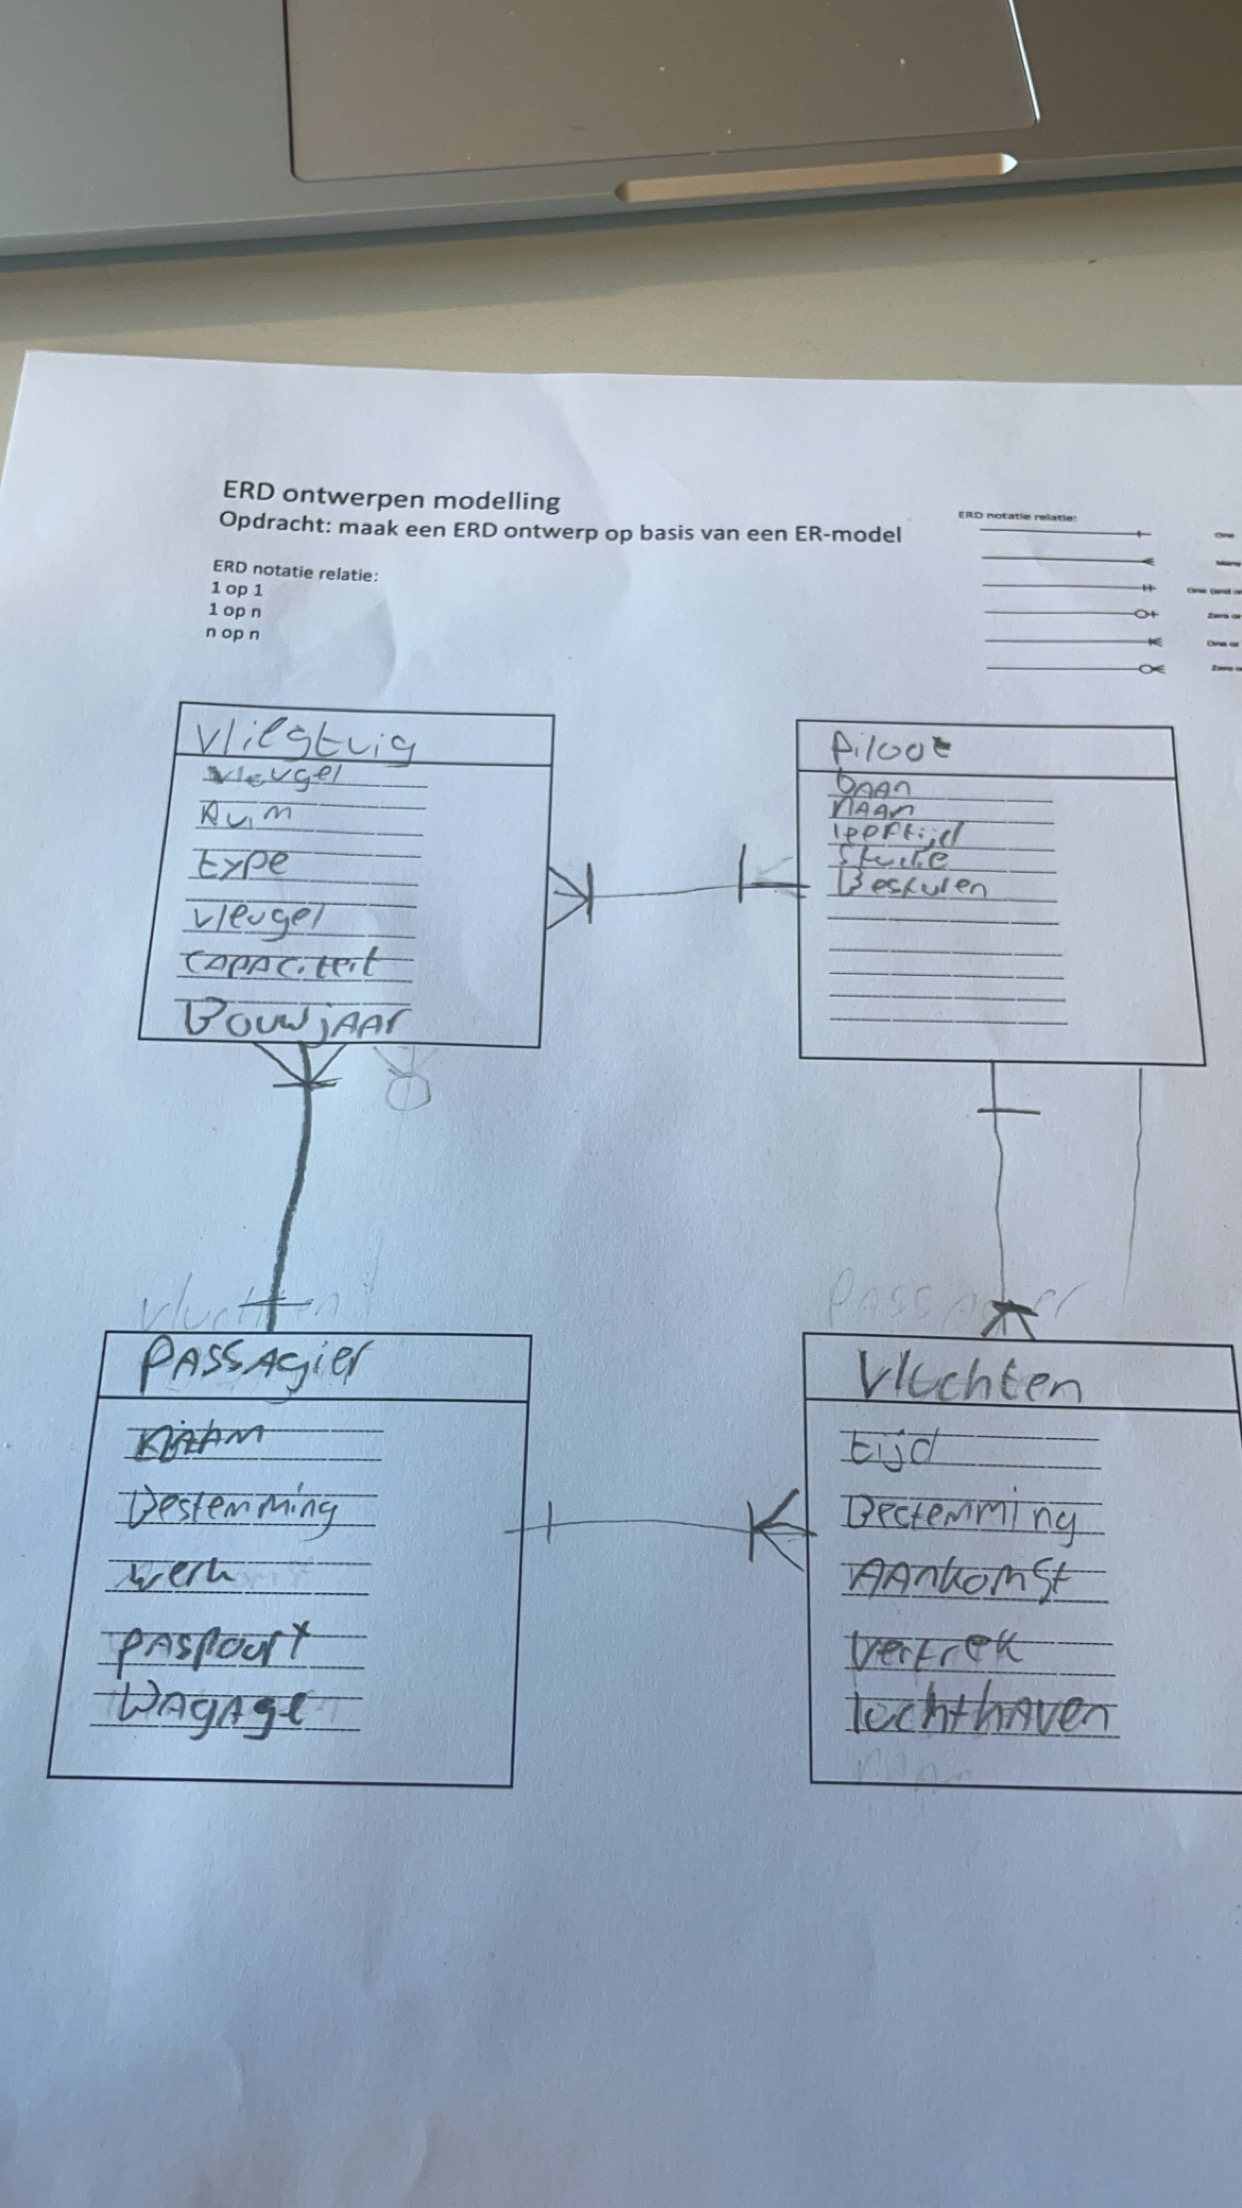 ERD ontwerpen modelling
Opdracht: maak een ERD ontwerp op basis van een ER-model
ERD notatie relatie:
1 op 1
1 op n
n op n
ERD notatie relatie:
One
Many
One (and
Zero or
One or
Zero or
Vliegtuig
vleugel
Ruim
type
vleugel
CAPACiteit
BouwjAAr
Piloot
bAAn
nAAm
leeftijd
Studie
Besturen
PASSAgier
nAAm
Bestemming
werk
PASPoort
WAgAge
Vluchten
tijd
Bestemming
AAnkomst
Vertrek
luchthAven